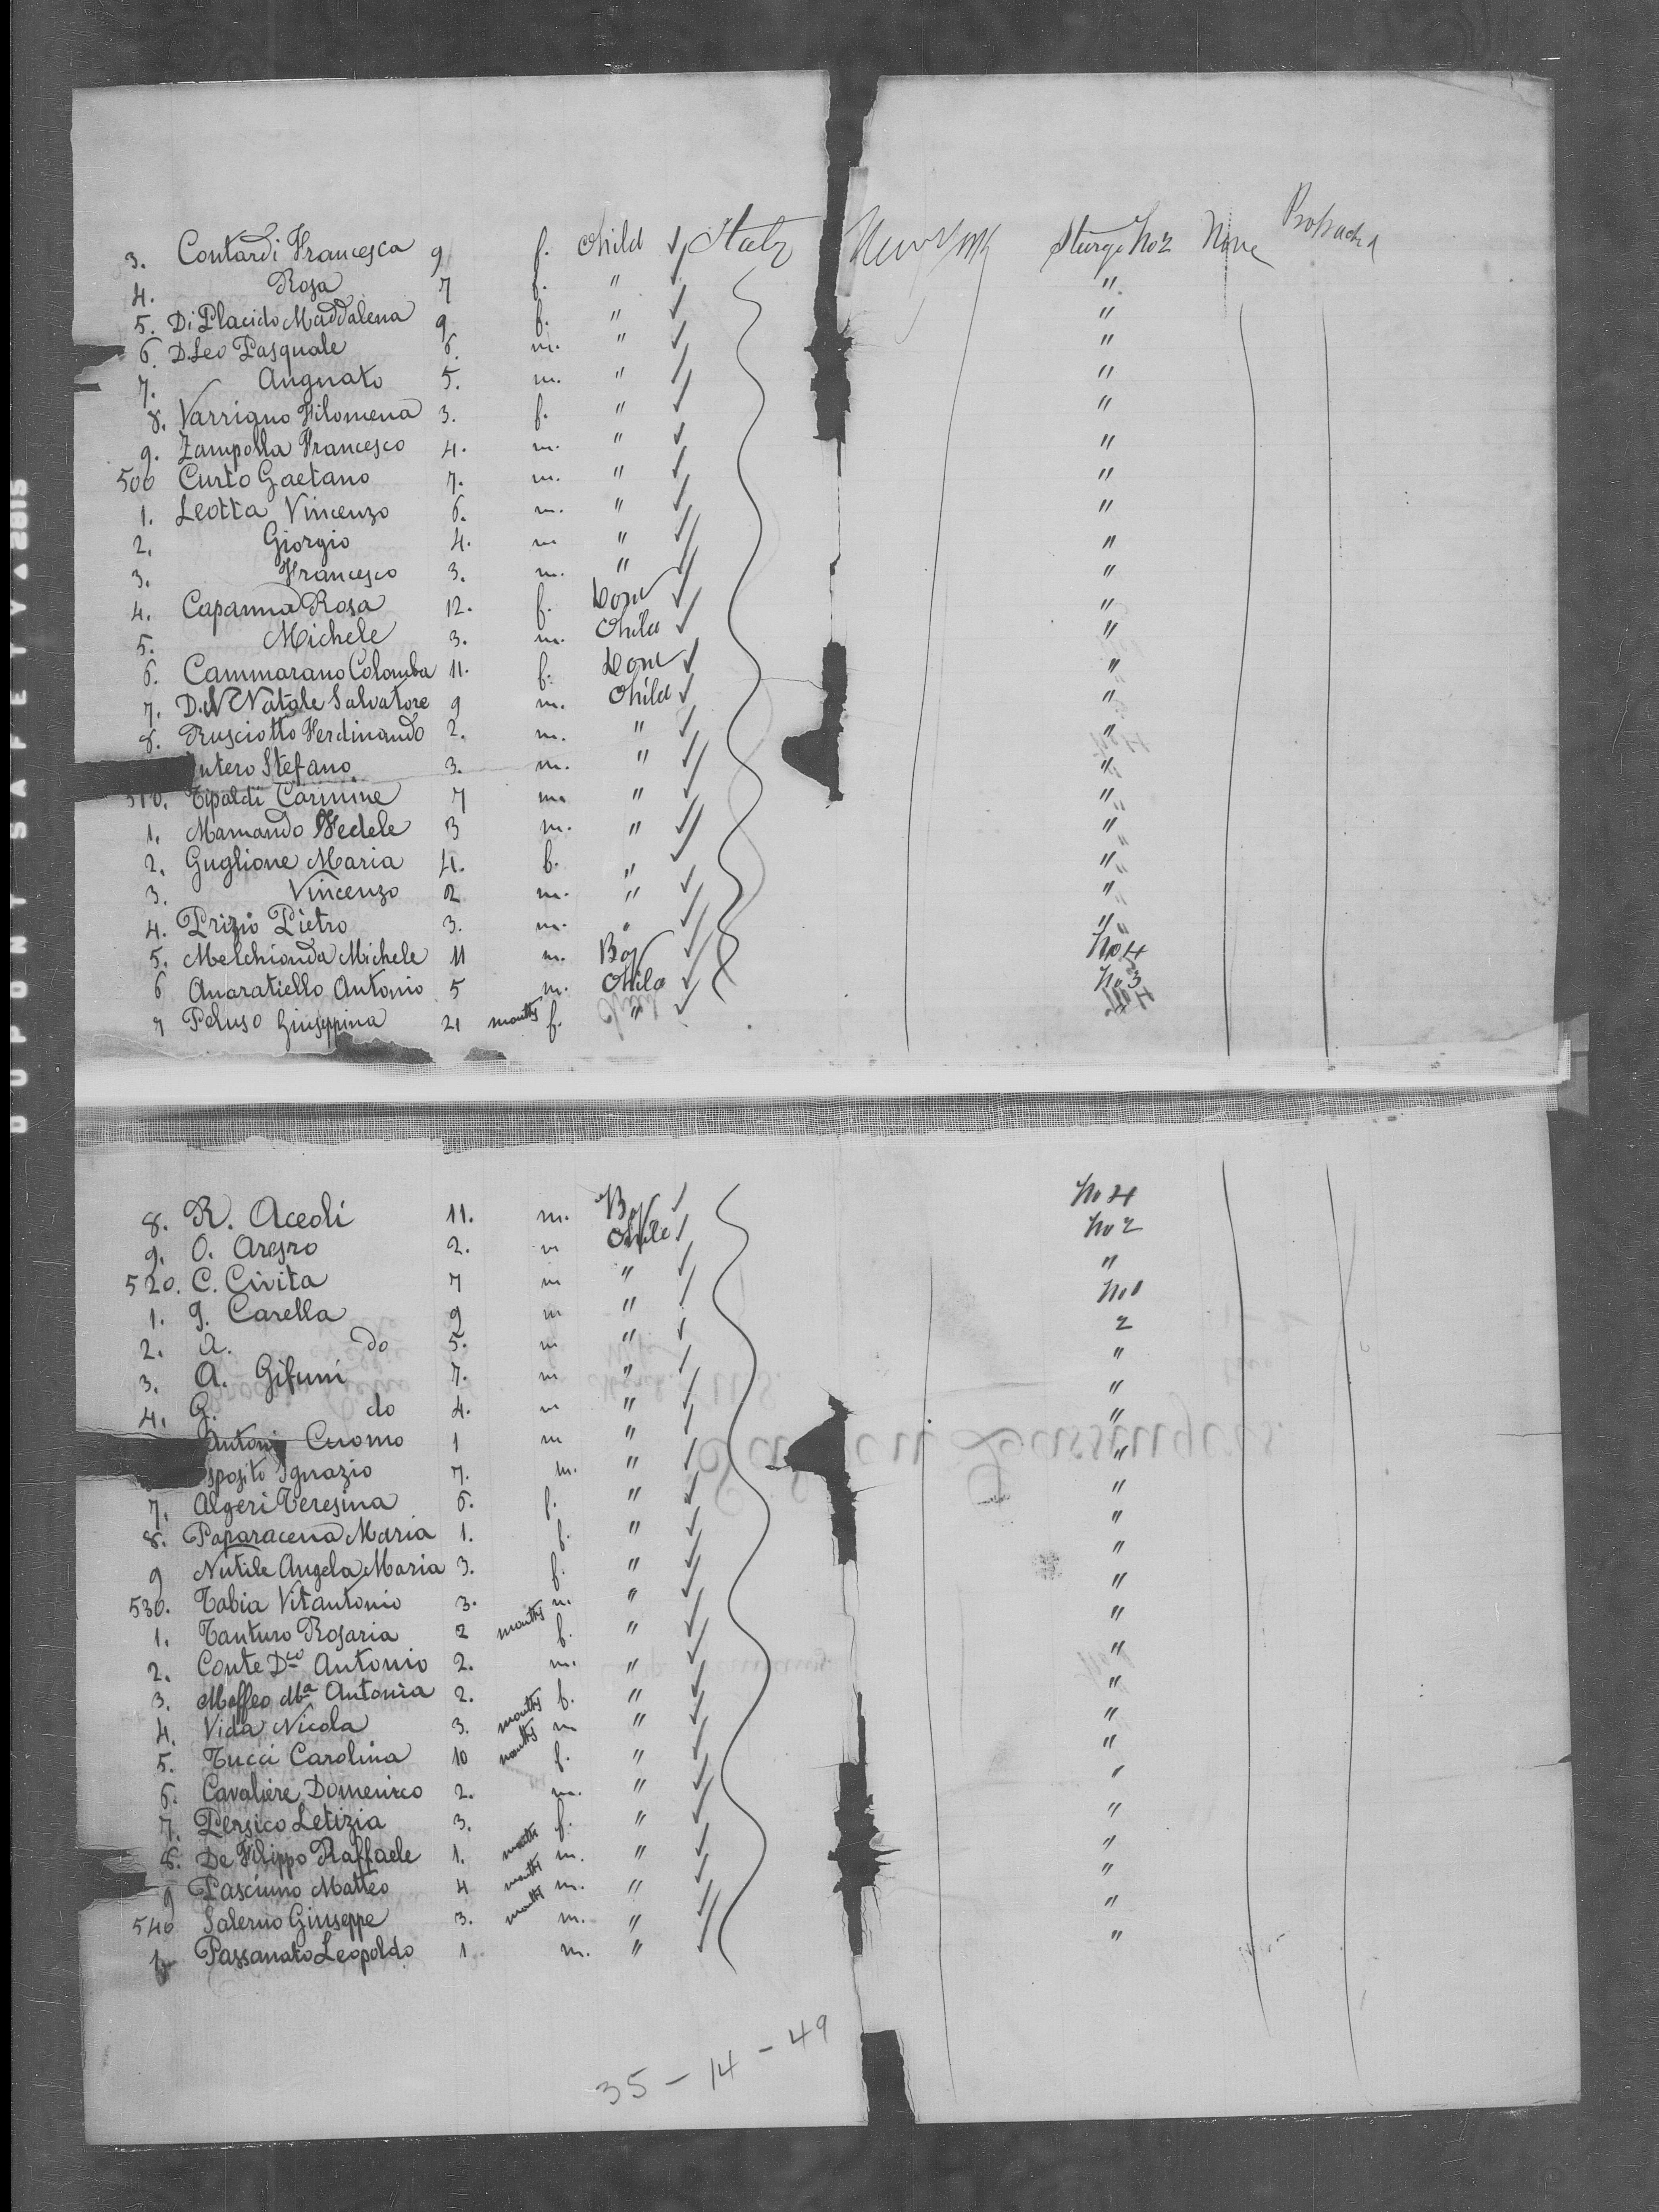 3. Contardi Francesca 9 f. Child ✓ Italy New York Steerge No 2 None
4. Rosa 7 f. " ✓ "
5. Di Placido Maddalena 9 f. " ✓ "
6. D. Leo Pasquale 6. m. " ✓ "
7. 5. m. " ✓ "
8. Varriano Filomena 3. f. " ✓ "
9. Zampolla Francesco 4. m. " ✓ "
500 Curto Gaetano 7. m. " ✓ "
1. Leotta Vincenzo 6. m. " ✓ "
2. Giorgio 4. m " ✓ "
3. Francesco 3. m. " ✓ "
4. Capanna Rosa 12. f. Dom ✓ "
5. Michele 3. m. Child ✓ "
6. Cammarano Colomba 11. f. Dom ✓ "
7. Natale Salvatore 9 m. Child ✓ "
8. Rusciotto Ferdinando 2. m. " ✓ "
Stefano 3. m. " ✓ "
510. Tipaldi Carmine 7 m. " ✓ "
1. Mamando Fedele 3 m. " ✓ "
2. Guglione Maria 4. f. " ✓ "
3. Vincenzo 2 m. " ✓ "
4. Prizio Pietro 3. m. " ✓ "
5. Melchionda Michele 11 m. Boy ✓ No 4
6 Anaratiello Antonio 5 m. Child ✓ No 3
7 Peluso Giuseppina 21 months f. " ✓ "
8. R. Aceoli 11. m. Boy ✓ No 4
9. O. 2. m Child ✓ No 2
520. C. Civita 7 m " ✓ "
1. G. Carella 9 m " ✓ No 1
2. A. do 5. m " ✓ 2
3. A. Gifuni 7. m " ✓ "
4. G. do 4. m " ✓ "
Antoni Cuomo 1 m " ✓ "
sposito Ignazio 7. m. " ✓ "
7. Algeri Teresina 6. f. " ✓ "
8. Paparacena Maria 1. f. " ✓ "
9 Nutile Angela Maria 3. f. " ✓ "
530. Tabia Vitantonio 3. m. " ✓ "
1. Tanturo Rosaria 2 months f. " ✓ "
2. Conte Dco Antonio 2. m. " ✓ "
3. Maffeo Ma Antonia 2. f. " ✓ "
4. Vida Nicola 3. months m " ✓ "
5. Tucci Carolina 10 months f. " ✓ "
6. Cavaliere Domenico 2. m. " ✓ "
7. Persico Letizia 3. f. " ✓ "
8. De Filippo Raffaele 1. months m. " ✓ "
9 Pasciuno Matteo 4 months m. " ✓ "
540 Salerno Giuseppe 3. months m. " ✓ "
1. Passanato Leopoldo 1. m. " ✓ "
35 - 14 - 49
DUPONT SAFETY